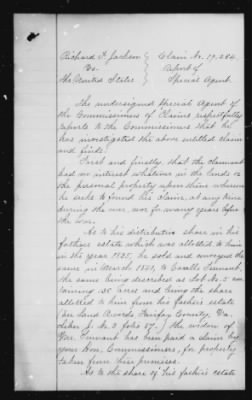 Richard F. Jackson } Claim No. 19.284
Vs. } Report of
The United States } Special Agent.
The undersigned Special Agent of
the Commissioners of Claims respectfully
reports to the Commissioners that he
has investigated the above entitled claim
and finds:
First and finally, that the claimant
had no interest whatever in the lands or
the personal property upon them whereon
he seeks to found his Claim, at any time
during the war, nor for many years before
the war.
As to his distributive share in his
father's estate which was allotted to him
in the year 1835, he sold and conveyed the
same in March 1851, to
the same being described as Lot No. 5 con
taining acres and being the share
allotted to him from his father's estate
(see Land Records Fairfax County, Va.
Liber No. 3 folio 57.) the widow of
has been paid a claim by
your Hon. Commissioners, for property
taken from these premises.
As to the share of his father's estate